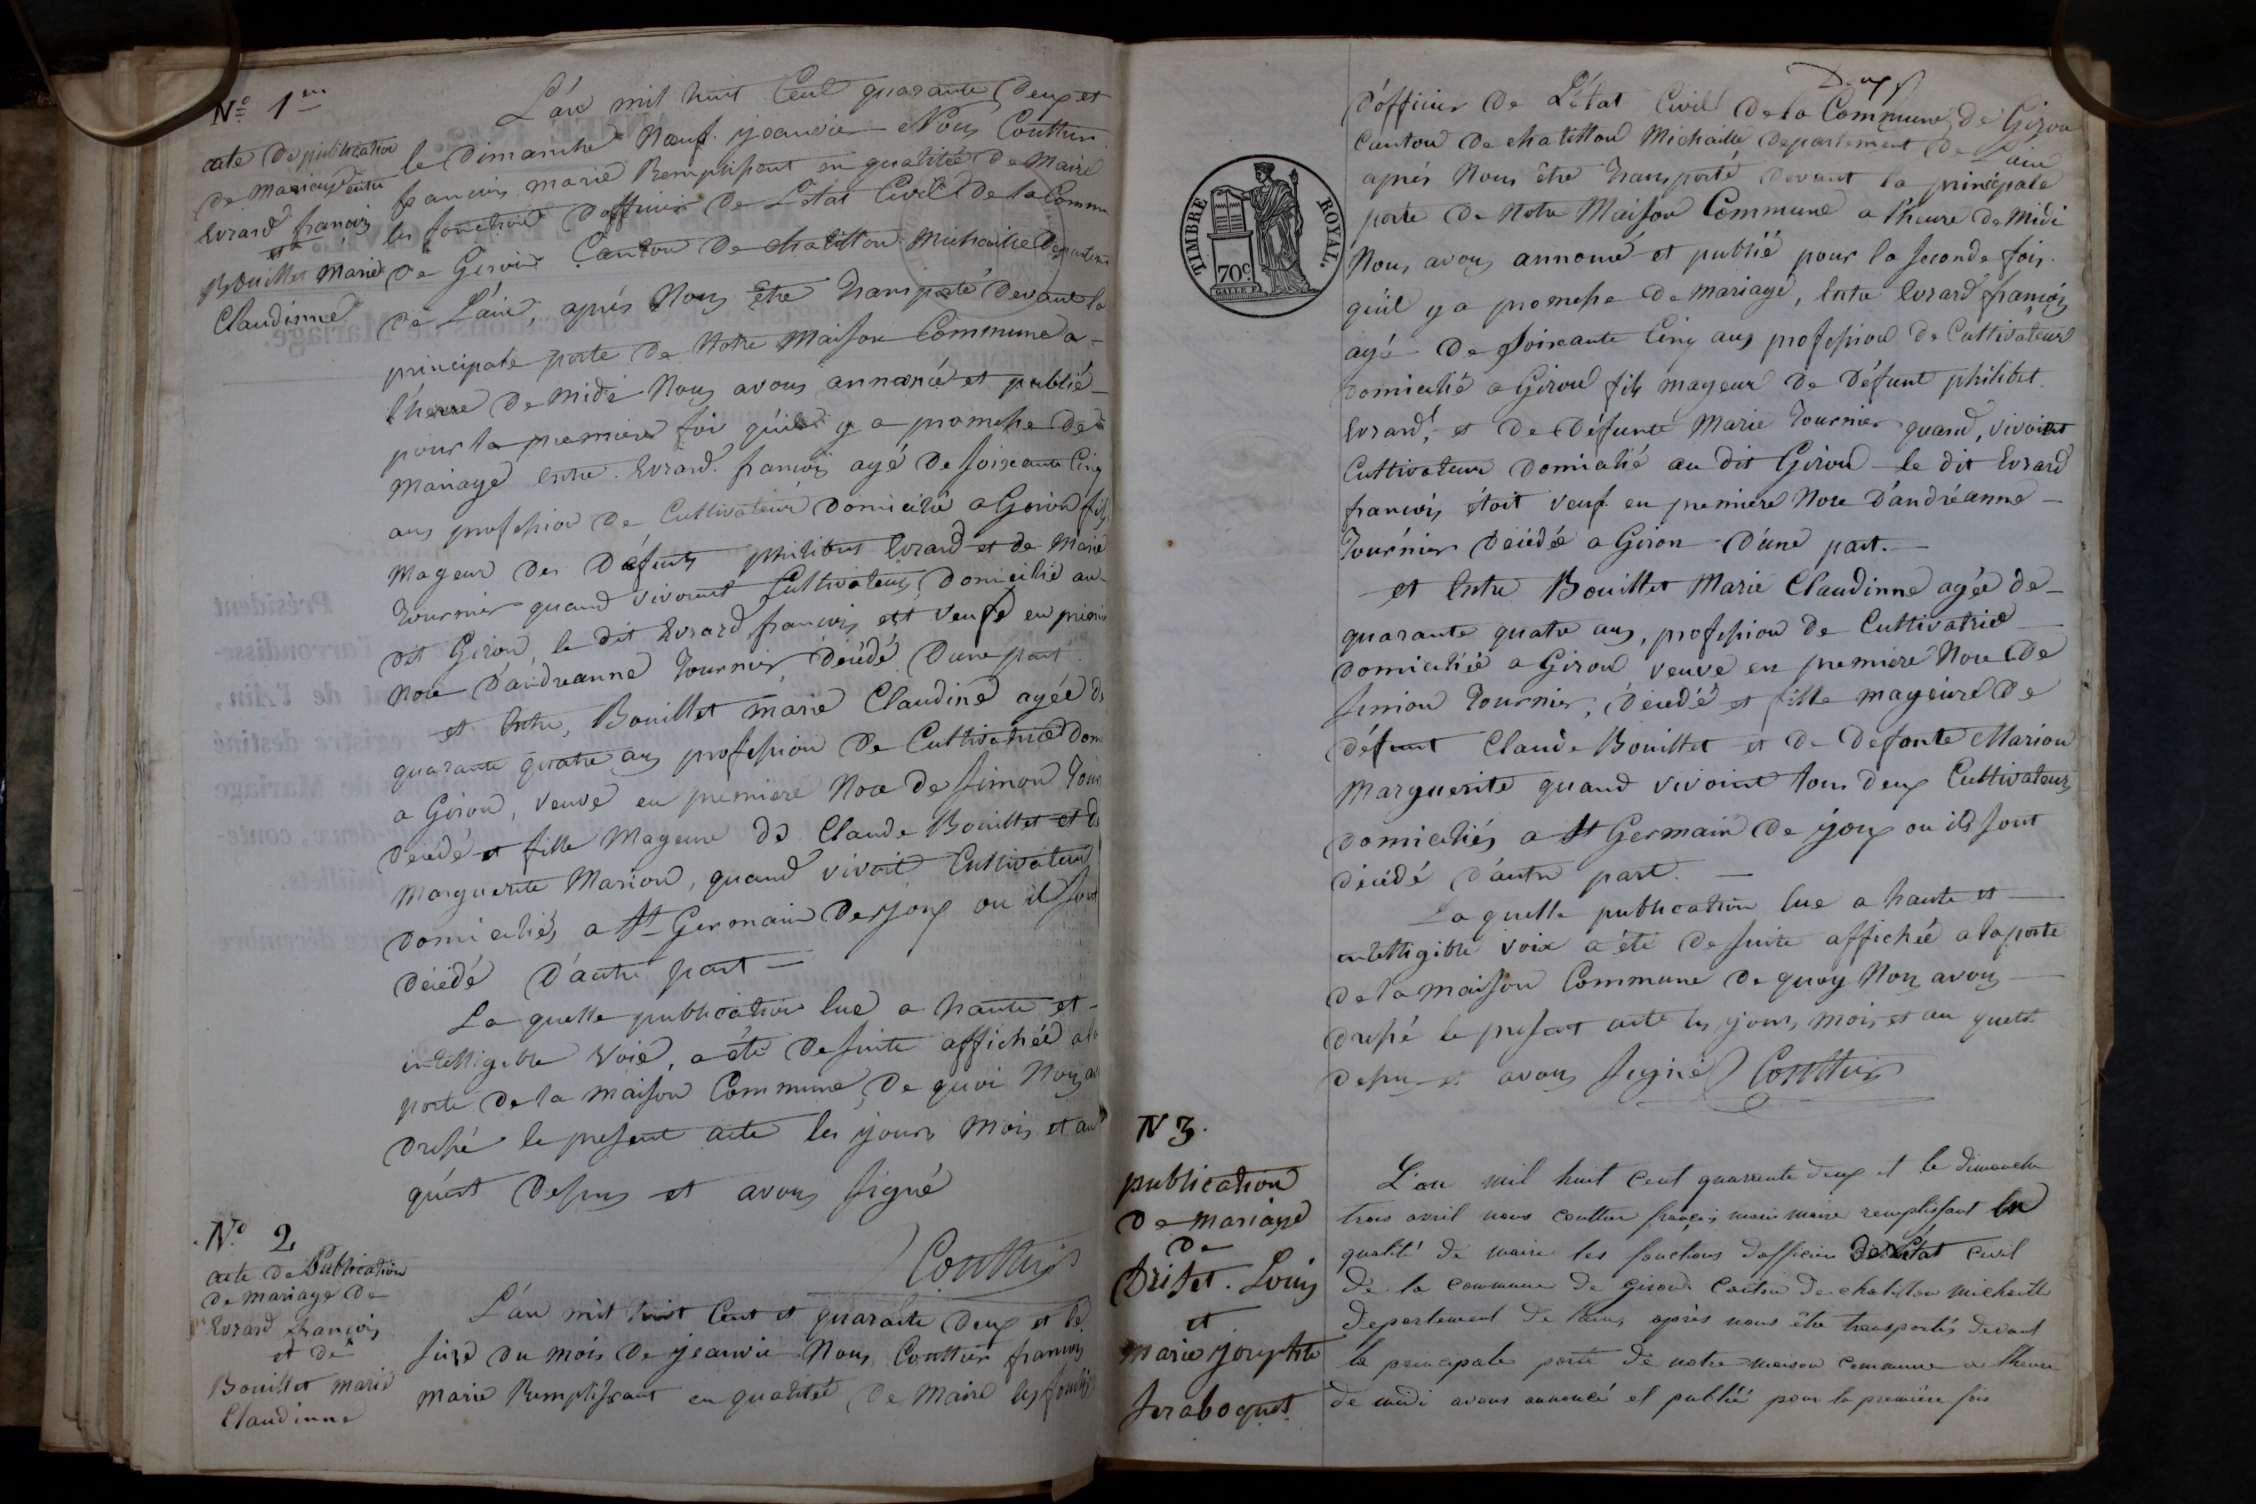 N° 1er
acte de publication
de mariage entre
Evrard françois
et
Bouillet Marie
Claudinne
L'an mil huit Cent quarante Deux et
le Dimanche Neuf jeanvie Nous Couttier
francois marie Remplissant en qualitée de Maire
les fonction D'officier de L'état Civil de la Commu
de Giron Canton de chatillon Michaille Departem
de L'ain, aprés Nous être transporté Devant la
principale porte de Notre Maison Commune a
l'heure de midi Nous avons annoncé et publié
pour la premiere foi qúil y a promesse de
Mariage entre Evrard francois agé de soixante Cinq
ans profession de Cultivateur Domicilié a Giron fils
Mageur des Défunts philibert Evrard et de Marie
Tournier quand vivoient Cultivateurs Domicilié au
dit Giron, le dit Evrard francois est veufe en premie
Noce D'andreanne Tournier Décédé D'une part.
et Entre, Bouillet marie Claudine agée de
quarante quatre ans profession de Cultivatrice Dom
a Giron, veuve en premiere Noce de Simon Tour
Décédé et fille Mageure de Claude Bouillet et de
Marguerite Marion, quand vivoit Cultivateur
Domiciliés a St Germain De Joux ou il sont
Décédé D'autre part
La quelle publication lue a haute et
intelligible Voie, a été De suite affichée a la
porte De la maison Commune, De quoi Nous av
dressé le present acte les jours Mois et an
qu'est Dessus et avons signé
Couttier
N° 2
acte de Publication
de mariage de
Evrard françois
et de
Bouillet marie
Claudinne
L'an mil huit Cent et quarante Deux et le
seize du mois de jeanvie Nous Couttier francois
marie Remplissant en qualitée de Maire les fonction
Deux
TIMBRE ROYAL.
70c.
D'officier de L'état Civil de la Commune de Giron
Canton de chatillon Michaille Departement de L'ain
aprés Nous être transporté Devant la principale
porte de Notre Maison Commune a l'heure de Midi
Nous avons annoncé et publié pour la seconde fois
qu'il y a promesse de mariage, Entre Evrard françois
agé de soixante Cinq ans profession de Cultivateur
Domicilié a Giron fils mageur de Défunt philibet
Evrard, et de Défunte Marie Tournier quand, vivoient
Cultivateur Domicilié au dit Giron le dit Evrard
francois étoit veuf en premiere Noce D'andréanne
Tournier Décédée a Giron D'une part.
et Entre Bouillet Marie Claudinne agée de
quarante quatre ans, profession de Cultivatrice
Domiciliée a Giron veuve en premiere Noce de
simion Tournier, Décédé et fille mageure de
défunt Claude Bouillet et de Defonte Marion
Marguerite quand vivoient tous deux Cultivateurs
Domiciliés a St Germain de joux ou ils sont
décédé D'autre part.
La quelle publication lue a haute et
intelligible voix a été de suite affichée a la porte
de la maison Commune de quoy Nous avons
dressé le present acte les jours, mois et an quest
dessus et avons signé Couttier
N 3.
publication
de mariage
de
Louis
et
marie josephte
L'an mil huit cent quarante deux et le dimanche
trois avril nous couttier françois marie maire remplissant en
qualité de maire les fonctions d'officier de L'état civil
de la commune de giron canton de chatillon michaille
departement de l'ain, après nous être transportés devant
la principale porte de notre maison commune a l'heure
de midi avons annoncé et publié pour la première fois